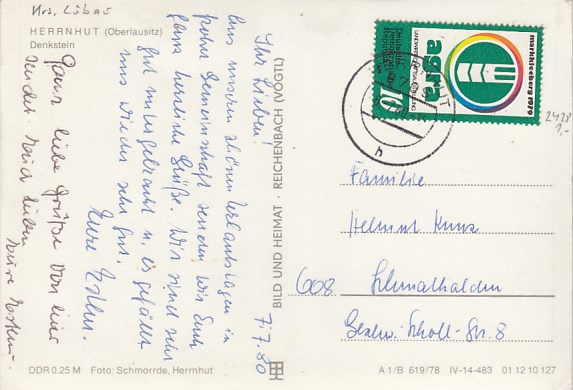 Krs. Löbau
HERRNHUT (Oberlausitz)
Denkstein
7.7.80
Ihr Lieben!
Aus unseren schönen Urlaubstagen in
froher Gemeinschaft senden wir Euch
ganz herzliche Grüße. Wir sind sehr
gut untergebracht u. es gefällt
uns wieder sehr gut.
Eure
Ganz liebe Grüße von hier
sendet Euch allen
BILD UND HEIMAT · REICHENBACH (VOGTL)
DDR 0,25 M Foto: Schmorrde, Herrnhut
markkleeberg 1979
agra
Deutsche
Demokratische
Republik
10
2428
1,-
Familie
Helmut
608 Schmalkalden
Geschw.-Scholl-Str. 8
A 1/B 619/78 IV-14-483 01 12 10 127